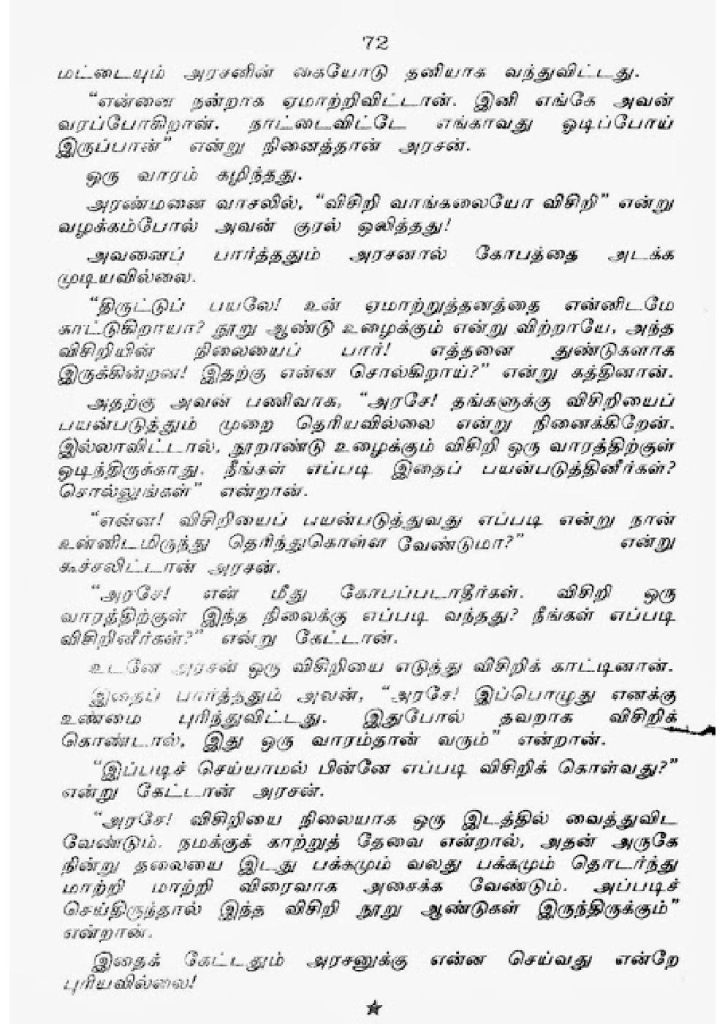 72
மட்டையும் அரசனின் கையோடு தனியாக வந்துவிட்டது.
“என்னை நன்றாக ஏமாற்றிவிட்டான். இனி எங்கே அவன்
வரப்போகிறான். நாட்டைவிட்டே எங்காவது ஓடிப்போய்
இருப்பான்” என்று நினைத்தான் அரசன்.
ஒரு வாரம் கழிந்தது.
அரண்மனை வாசலில், “விசிறி வாங்கலையோ விசிறி” என்று
வழக்கம்போல் அவன் குரல் ஒலித்தது!
அவனைப் பார்த்ததும் அரசனால் கோபத்தை அடக்க
முடியவில்லை.
“திருட்டுப் பயலே! உன் ஏமாற்றுத்தனத்தை என்னிடமே
காட்டுகிறாயா? நூறு ஆண்டு உழைக்கும் என்று விற்றாயே, அந்த
விசிறியின் நிலையைப் பார்! எத்தனை துண்டுகளாக
இருக்கின்றன! இதற்கு என்ன சொல்கிறாய்?” என்று கத்தினான்.
அதற்கு அவன் பணிவாக, “அரசே! தங்களுக்கு விசிறியைப்
பயன்படுத்தும் முறை தெரியவில்லை என்று நினைக்கிறேன்.
இல்லாவிட்டால், நூறாண்டு உழைக்கும் விசிறி ஒரு வாரத்திற்குள்
ஒடிந்திருக்காது. நீங்கள் எப்படி இதைப் பயன்படுத்தினீர்கள்?
சொல்லுங்கள்” என்றான்.
“என்ன! விசிறியைப் பயன்படுத்துவது எப்படி என்று நான்
உன்னிடமிருந்து தெரிந்துகொள்ள வேண்டுமா?” என்று
கூச்சலிட்டான் அரசன்.
“அரசே! என் மீது கோபப்படாதீர்கள். விசிறி ஒரு
வாரத்திற்குள் இந்த நிலைக்கு எப்படி வந்தது? நீங்கள் எப்படி
விசிறினீர்கள்?” என்று கேட்டான்.
உடனே அரசன் ஒரு விசிறியை எடுத்து விசிறிக் காட்டினான்.
இதைப் பார்த்ததும் அவன், “அரசே! இப்பொழுது எனக்கு
உண்மை புரிந்துவிட்டது. இதுபோல் தவறாக விசிறிக்
கொண்டால், இது ஒரு வாரம்தான் வரும்” என்றான்.
“இப்படிச் செய்யாமல் பின்னே எப்படி விசிறிக் கொள்வது?”
என்று கேட்டான் அரசன்.
“அரசே! விசிறியை நிலையாக ஒரு இடத்தில் வைத்துவிட
வேண்டும். நமக்குக் காற்றுத் தேவை என்றால், அதன் அருகே
நின்று தலையை இடது பக்கமும் வலது பக்கமும் தொடர்ந்து
மாற்றி மாற்றி விரைவாக அசைக்க வேண்டும். அப்படிச்
செய்திருந்தால் இந்த விசிறி நூறு ஆண்டுகள் இருந்திருக்கும்”
என்றான்.
இதைக் கேட்டதும் அரசனுக்கு என்ன செய்வது என்றே
புரியவில்லை!